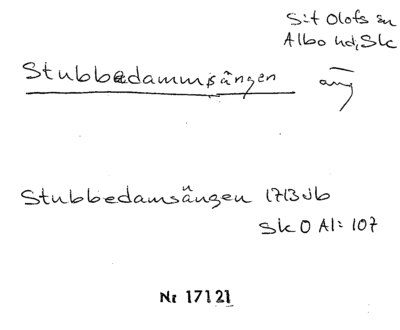 S:t Olofs sn
Albo hd, Sk
Stubbedammsängen äng
Stubbedamsängen 1713 Jb
Sk O Al: 107
Nr 17121